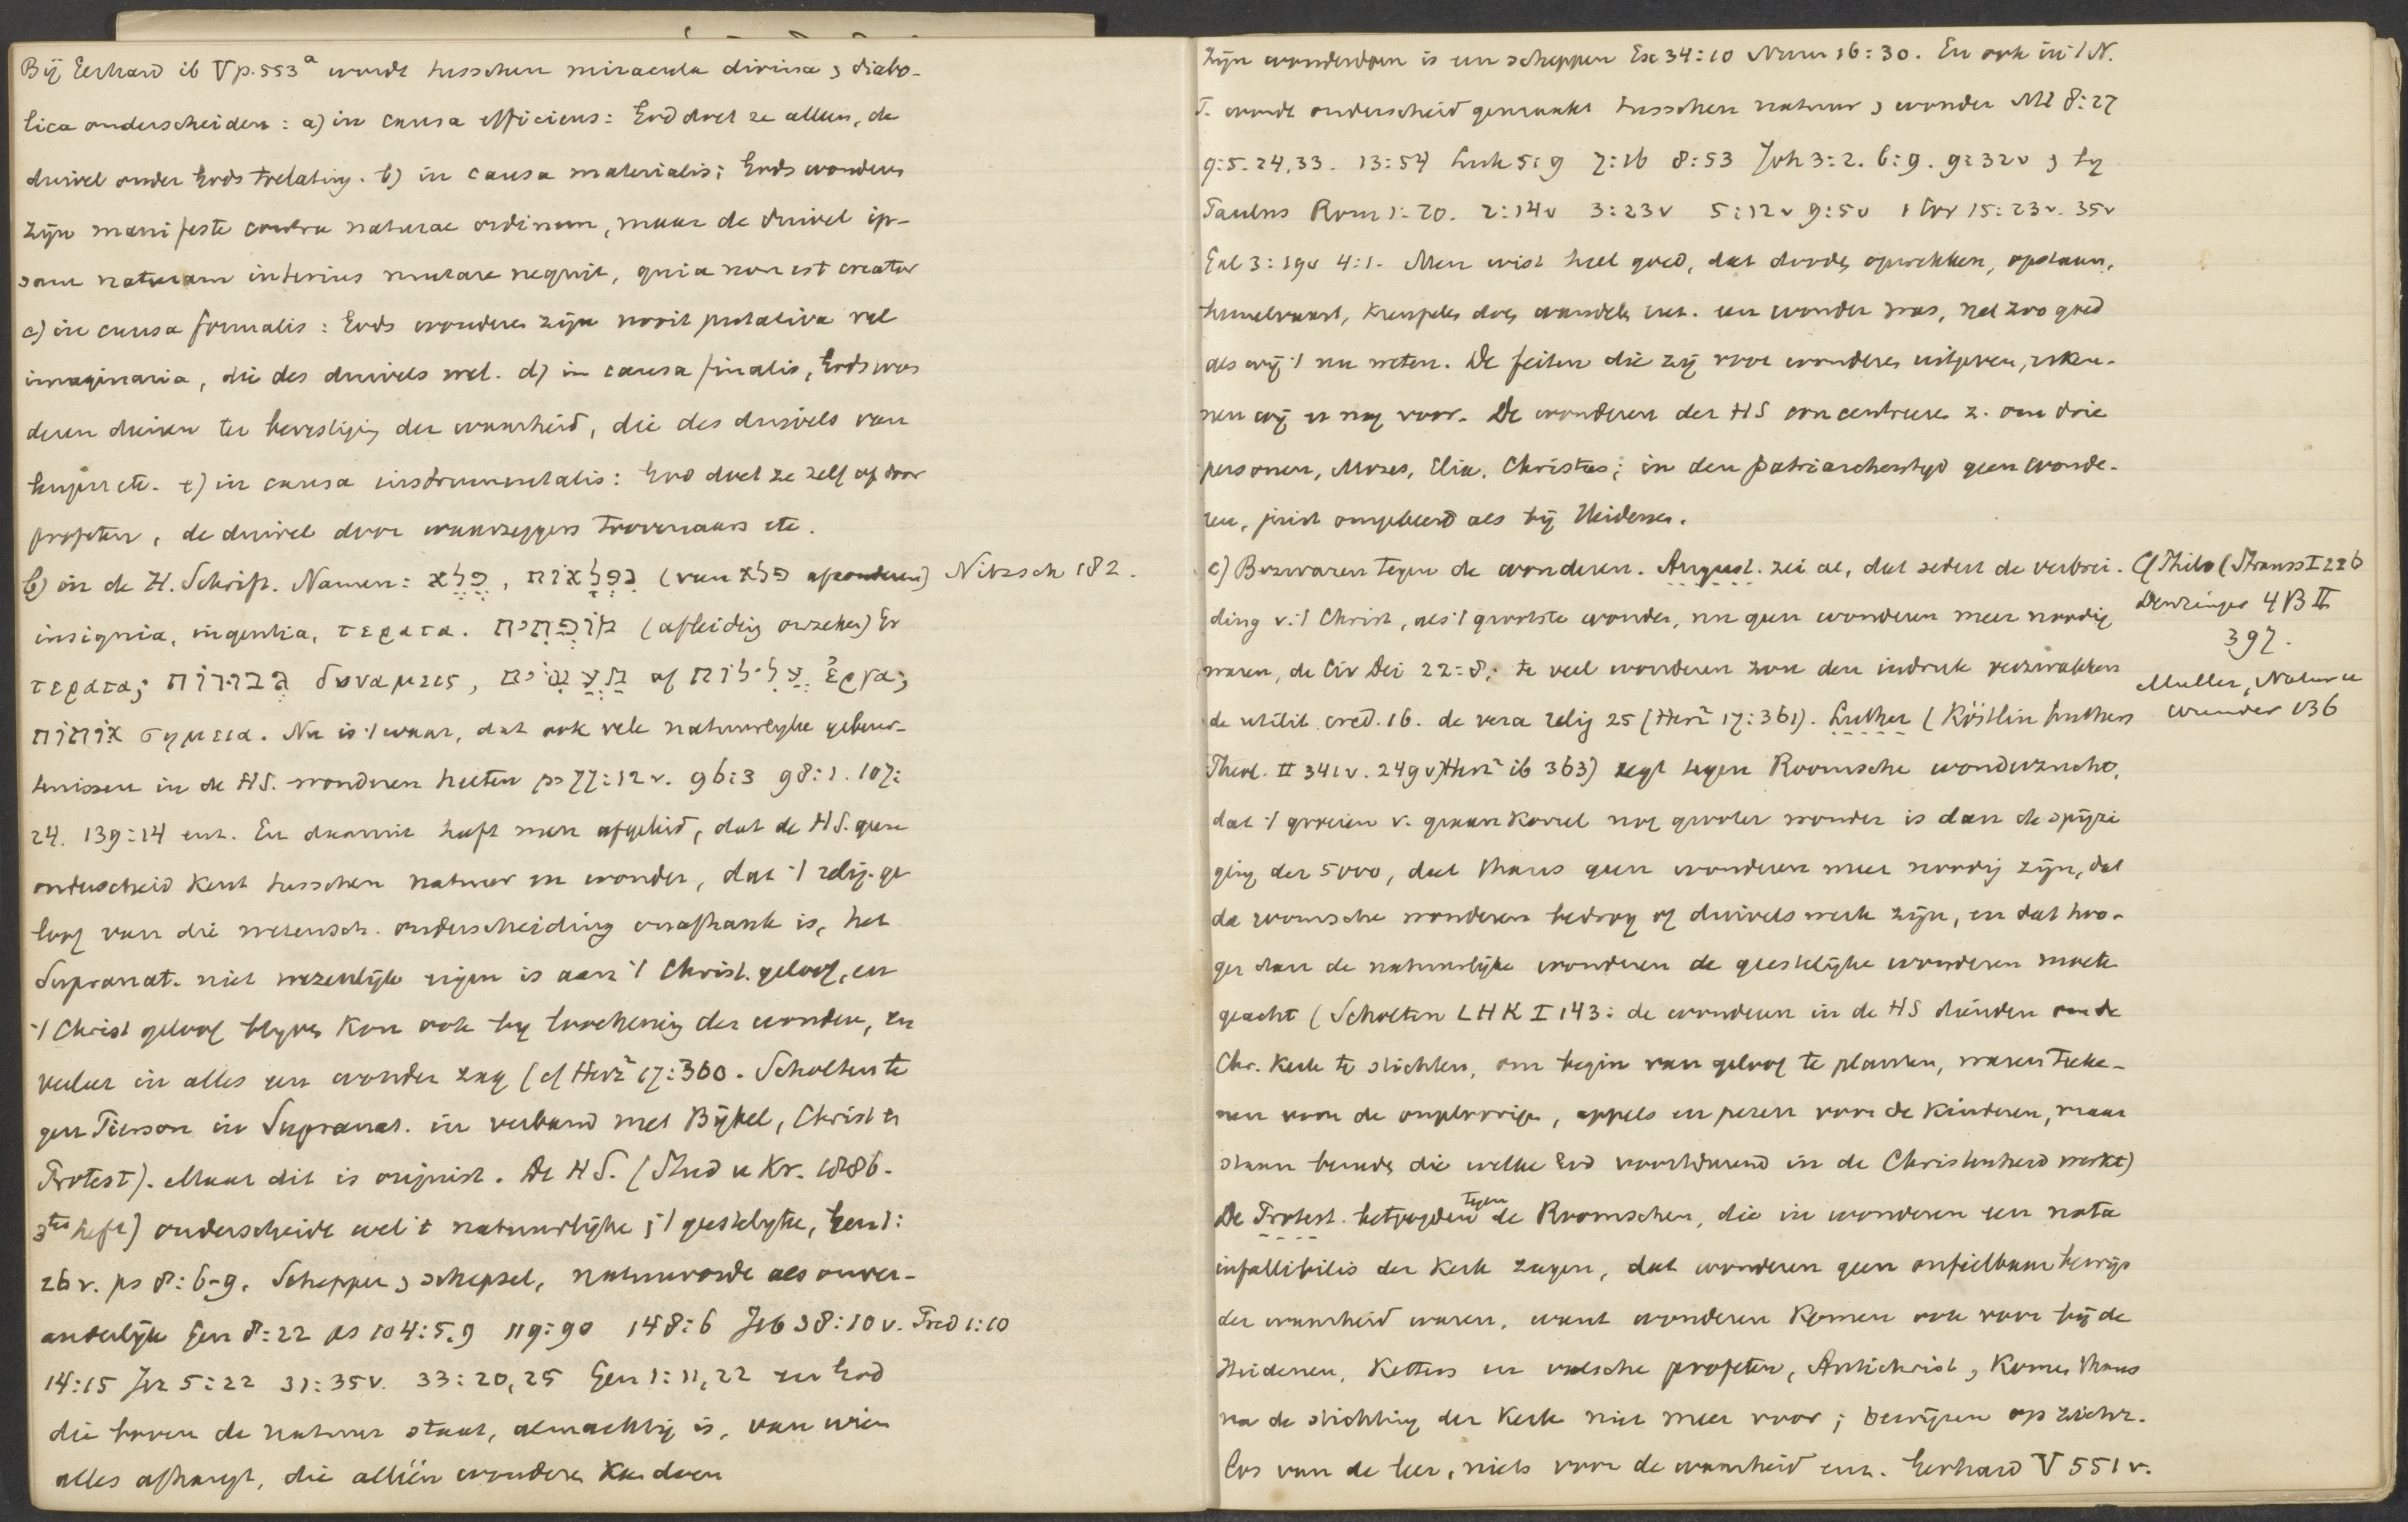 Bij Gerhard ib V p. 553ᵃ wordt tusschen miracula divina & diabo-
lica onderscheiden: a) in causa efficiens: God doet ze alleen, de
duivel onder Gods toelating. b) in causa materialis; Gods wonderen
zijn manifeste contra naturae ordinem, maar de duivel ip-
sam naturam interius mutare nequit, quia non est creator
c) in causa formalis: Gods wonderen zijn nooit putativa vel
imaginaria, die des duivels wel. d) in causa finalis, Gods won
deren dienen ter bevestiging der waarheid, die des duivels van
leugen etc. e) in causa instrumentalis: God doet ze zelf of door
profeten, de duivel door waarzeggers toovenaars etc.
b) in de H. Schrift. Namen: פֶּלֶא, נִפְלָאוֹת (van פלא afzonderen) Nitzsch 182.
insignia, ingentia, τερατα. מוֹפְתִים (afleiding onzeker) Gr
τερατα; גְּבוּרוֹת δυναμεις, מַעֲשִׂים of עֲלִילוֹת ἔργα;
אותות σημεια. Nu is 't waar, dat ook vele natuurlijke gebeur-
tenissen in de HS. wonderen heeten ps 77:12 v. 96:3 98:1. 107:
24. 139:14 enz. En daaruit heeft men afgeleid, dat de HS. geen
onderscheid kent tusschen natuur en wonder, dat 't relig. ge
loof van die wetensch. onderscheiding onafhank is, het
Supranat. niet wezenlijk eigen is aan 't Christ. geloof, en
't Christ geloof blijven kon ook bij loochening der wonderen, en
veeleer in alles een wonder zag (cf Herz² 17:360. Scholten te
gen Pierson in Supranat. in verband met Bijbel, Christ en
Protest). Maar dit is onjuist. De HS. (Stud u Kr. 1886.
3ᵗᵉˢ heft) onderscheidt wel 't natuurlijke & 't geestelijke, Gen 1:
26 v. ps 8:6-9. Schepper & schepsel, natuurorde als onver-
anderlijk Gen 8:22 ps 104:5.9 119:90 148:6 Job 38:10 v. Pred 1:10
14:15 Jer 5:22 31:35 v. 33:20,25 Gen 1:11,22 en God
die boven de natuur staat, almachtig is, van wien
alles afhangt, die alléén wonderen kan doen
Zijn wonderdoen is een scheppen Ex 34:10 Num 16:30. En ook in 't N.
T. wordt onderscheid gemaakt tusschen natuur & wonder Mt 8:27
9:5.24,33. 13:54 Luk 5:9 7:16 8:53 Joh 3:2. 6:9. 9:32 v & bij
Paulus Rom 1:20. 2:14 v 3:23 v 5:12 v 9:5 v 1 Cor 15:23 v. 35 v
Gal 3:19 v 4:1. Men wist heel goed, dat dooden opwekken, opstaan,
hemelvaart, kreupelen doen wandelen enz. een wonder was, net zoo goed
als wij 't nu weten. De feiten die zij voor wonderen uitgeven, erken-
nen wij er nog voor. De wonderen der HS concentreren z. om drie
personen, Mozes, Elia, Christus; in den patriarchentijd geen wonde-
ren, juist omgekeerd als bij Heidenen.
c) Bezwaren tegen de wonderen. August. zei al, dat sedert de verbrei-
ding v. 't Christ, als 't grootste wonder, nu geen wonderen meer noodig
waren, de Civ Dei 22:8; te veel wonderen zou den indruk verzwakken
de utilit. cred. 16. de vera relig 25 (Herz² 17:361). Luther (Köstlin Luthers
Theol. II 341 v. 249 v) Herz² ib 363) zegt tegen Roomsche wonderzucht,
dat 't groeien v. graankorrel nog grooter wonder is dan de spijzi
ging der 5000, dat thans geen wonderen meer noodig zijn, dat
de roomsche wonderen bedrog of duivelswerk zijn, en dat hoo-
ger dan de natuurlijke wonderen de geestelijke wonderen moeten
geacht (Scholten LHK I 143: de wonderen in de HS dienden om de
Chr. Kerk te stichten, om begin van geloof te planten, waren teeke-
nen voor de ongeloovigen, appels en peren voor de kinderen, maar
staan beneden die welke God voortdurend in de Christenheid werkt)
De Protest. betoogden tegen de Roomschen, die in wonderen een nota
infallibilis der Kerk zagen, dat wonderen geen onfeilbaar bewijs
der waarheid waren, want wonderen komen ook voor bij de
Heidenen, Ketters en valsche profeten, Antichrist, & komen thans
na de stichting der Kerk niet meer voor; bewijzen op zichz.
los van de leer, niets voor de waarheid enz. Gerhard V 551 v.
Cf Philo (Strauss I 226
Denzinger 4 B II
397.
Muller, Natur u
wunder 136